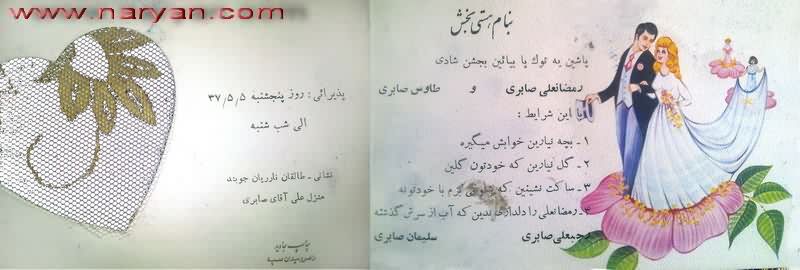 www.naryan.com
بنام هستی بخش
پاشین یه توك پا بیائین بجشن شادی
رمضانعلی صابری و طاوس صابری
با این شرایط :
۱ - بچه نیارین خوابش میگیره
۲ - گل نیارین که خودتون گلین
۳ - ساکت نشینین که شلوغی بزم با خودتونه
۴ - رمضانعلی را دلداری بدین که آب از سرش گذشته
رجبعلی صابری سلیمان صابری
پذیرائی : روز پنجشنبه ۳۷/۵/۵
الی شب شنبه
نشانی - طالقان ناریان جوبند
منزل علی آقای صابری
چاپ جاوید